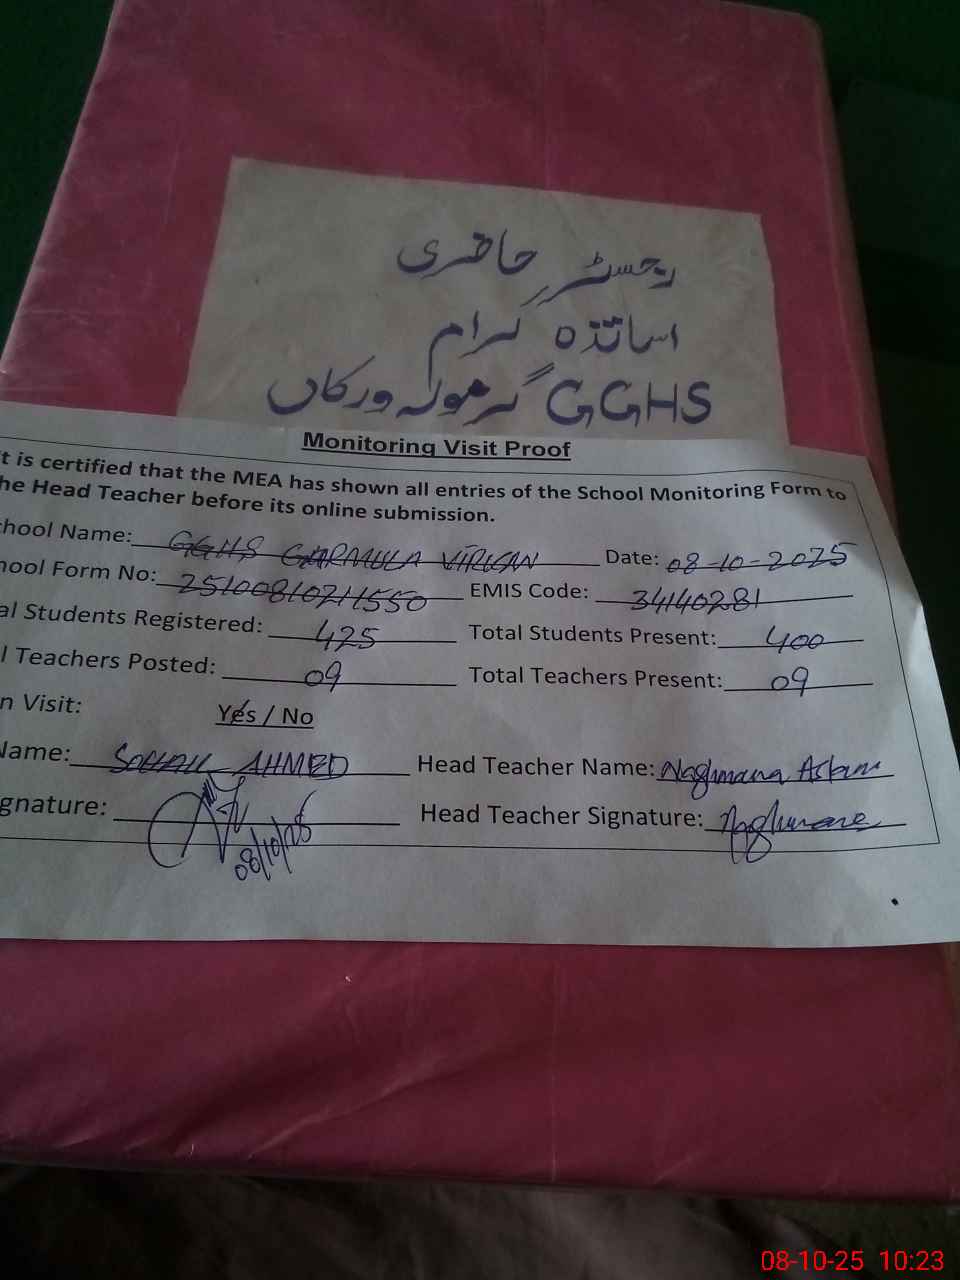 رجسٹر حاضری
اساتذہ کرام
GGHS گرمولہ ورکاں
Monitoring Visit Proof
t is certified that the MEA has shown all entries of the School Monitoring Form to
he Head Teacher before its online submission.
chool Name: GGHS GARMULA VIRKAN Date: 08-10-2025
hool Form No: 25100810211550 EMIS Code: 34140281
al Students Registered: 425 Total Students Present: 400
l Teachers Posted: 09 Total Teachers Present: 09
n Visit: Yes / No
Name: SOHAIL AHMED Head Teacher Name: Naghmana Aslam
gnature: Head Teacher Signature: Naghmana
08/10/25
08-10-25 10:23